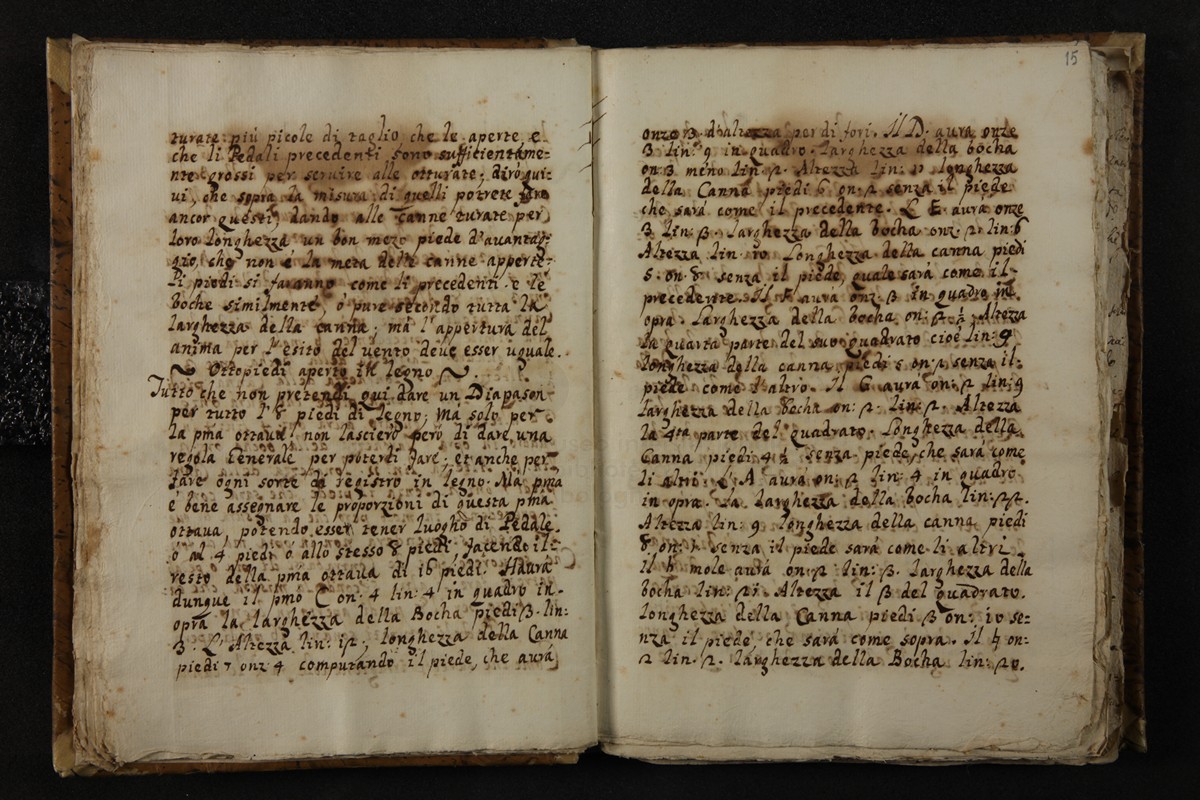 turate più picole di taglio che le aperte e
che li Pedali precedenti sono sufficienteme=
nte grossi per seruire alle otturate; dirò qui=
ui, che sopra la misura di quelli potrete fare
ancor questi; dando alle canne turate per
loro longhezza un bon mezo piede d'auantag=
gio, che non è la metà delle canne apperte.
Li piedi si faranno come li precedenti e le
boche similmente, ò pure secondo tutta la
larghezza della canna; mà l'appertura del
anima per l'esito del uento deue esser uguale.
Ottopiedi aperto in legno
Tutto che non pretendi qui dare un Diapason
per tutto l'8 piedi di legno; mà solo per
la pma ottaua; non lascierò però di dare una
regola Generale per poterli fare, et anche per
fare ogni sorte di registro in legno. Ma pma
è bene assegnare le proporzioni di questa pma
ottaua, potendo esser tener luogho di Pedale
ò al 4 piedi ò allo stesso 8 piedi, facendo il
resto della pma ottaua di 16 piedi. Haurà
dunque il pmo C on: 4 lin: 4 in quadro in
opra la larghezza della Bocha piedi 3. lin:
3. L'Altezza lin: 12; longhezza della Canna
piedi 7 onz 4 computando il piede, che aurà
15
onze 3 d'altezza per di fori. Il D. aurà onze
3 lin: 9 in quadro. larghezza della bocha
on: 3 meno lin: 2. Altezza lin: 11 longhezza
della Canna piedi 6 on: 2 senza il piede
che sarà come il precedente. L E aurà onze
3 lin: 3. larghezza della bocha onz: 2 lin: 6
Altezza lin: 10 Longhezza della canna piedi
5 on: 8 senza il piede, quale sarà come il
precedente. Il F aurà onz: 3 in quadro in
opra. Larghezza della bocha on: 2 1/2 Altezza
la quarta parte del suo quadrato cioè lin: 9
longhezza della canna piedi 5 on: 1 senza il
piede come l'altro. Il G aurà on: 2 lin: 9
larghezza della bocha on: 2: lin: 2. Altezza
la 4ta parte del quadrato. Longhezza della
Canna piedi 4 1/2 senza piede, che sarà come
li altri. L'A aurà on: 2 lin: 4 in quadro
in opra. La larghezza della bocha lin: 22.
Altezza lin: 9 longhezza della canna piedi
on: senza il piede sarà come li altri
Il b mole aurà on: 2 lin: 3. larghezza della
bocha lin: 21. Altezza il 3 del quadrato.
longhezza della Canna piedi 3 on: 10 se=
nza il piede che sarà come sopra. Il ♮ on:
2 lin: 2. larghezza della Bocha lin: 20.